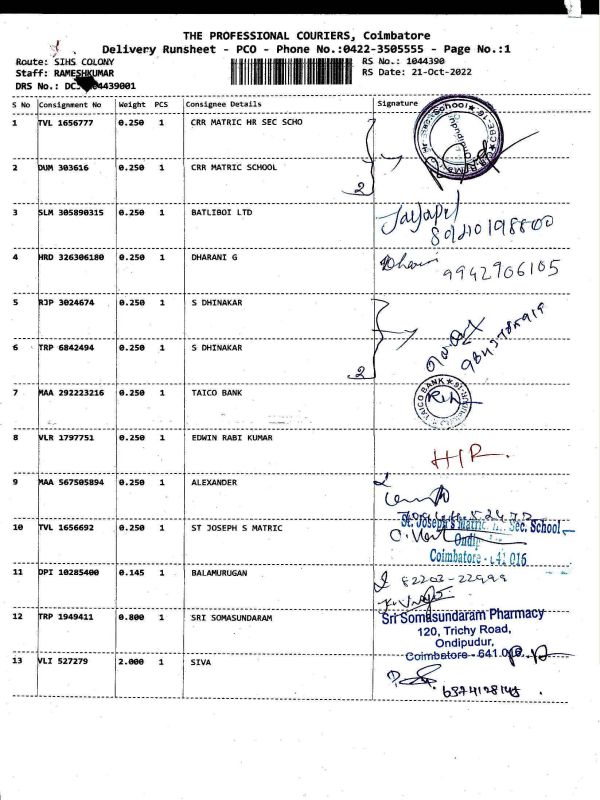 THE PROFESSIONAL COURIERS, Coimbatore
Delivery Runsheet - PCO - Phone No.:0422-3505555 - Page No.:1
Route: SIHS COLONY
RS No.: 1044390
Staff: RAMESHKUMAR
RS Date: 21-Oct-2022
DRS No.: DCJ 04439001
S No Consignment No Weight PCS Consignee Details Signature
1 TVL 1656777 0.250 1 CRR MATRIC HR SEC SCHO
2 DUM 303616 0.250 1 CRR MATRIC SCHOOL
2
3 SLM 305890315 0.250 1 BATLIBOI LTD
4 HRD 326306180 0.250 1 DHARANI G
9942906105
5 RJP 3024674 0.250 1 S DHINAKAR
6 TRP 6842494 0.250 1 S DHINAKAR
2
7 MAA 292223216 0.250 1 TAICO BANK
TAICO BANK
8 VLR 1797751 0.250 1 EDWIN RABI KUMAR
9 MAA 567505894 0.250 1 ALEXANDER
10 TVL 1656692 0.250 1 ST JOSEPH S MATRIC
St. Joseph's Matric. Sec. School
Coimbatore
11 DPI 10285400 0.145 1 BALAMURUGAN
12 TRP 1949411 0.800 1 SRI SOMASUNDARAM
Sri Somasundaram Pharmacy
120, Trichy Road,
Ondipudur,
Coimbatore - 641 016.
13 VLI 527279 2.000 1 SIVA